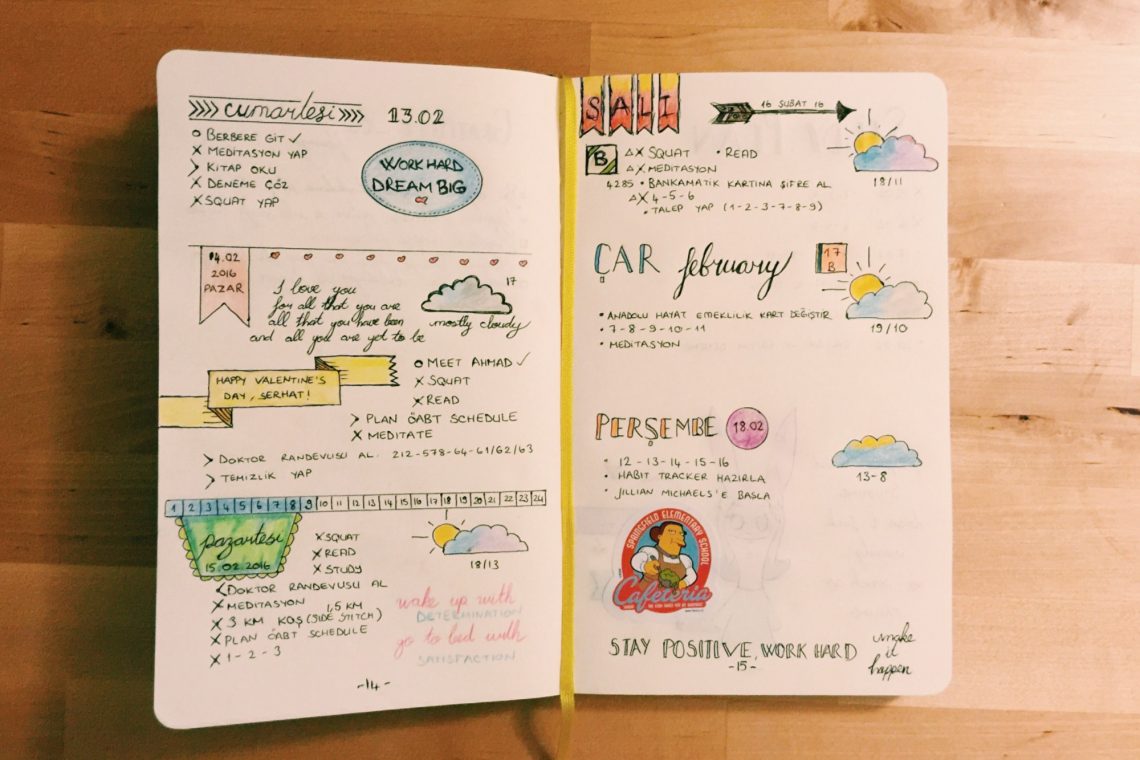 cumartesi 13.02
o BERBERE GİT ✓
x MEDITASYON YAP
> KITAP OKU
x DENEME ÇÖZ
x SQUAT YAP
WORK HARD
DREAM BIG
14.02
2016
PAZAR
I love you
for all that you are
all that you have been
and all you are yet to be
17
mostly cloudy
HAPPY VALENTINE'S
DAY, SERHAT!
o MEET AHMAD ✓
x SQUAT
x READ
> PLAN ÖABT SCHEDULE
x MEDITATE
> DOKTOR RANDEVUSU AL. 212-578-64-61/62/63
> TEMIZLIK YAP
1 2 3 4 5 6 7 8 9 10 11 12 13 14 15 16 17 18 19 20 21 22 23 24
pazartesi
15.02.2016
x SQUAT
x READ
x STUDY
18/13
< DOKTOR RANDEVUSU AL
x MEDITASYON
x 3 KM KOŞ (SIDE STITCH) 1,5 KM
x PLAN ÖABT SCHEDULE
x 1-2-3
wake up with
DETERMINATION
go to bed with
SATISFACTION
-14-
SALI
16 ŞUBAT 16
18/11
B
△x SQUAT • READ
△x MEDITASYON
4285 • BANKAMATIK KARTINA ŞIFRE AL
△x 4-5-6
• TALEP YAP (1-2-3-7-8-9)
ÇAR february
17
B
19/10
• ANADOLU HAYAT EMEKLILIK KART DEĞIŞTIR
• 7-8-9-10-11
• MEDITASYON
PERŞEMBE 18.02
13-8
• 12-13-14-15-16
• HABIT TRACKER HAZIRLA
• JILLIAN MICHAELS'E BAŞLA
SPRINGFIELD ELEMENTARY SCHOOL
Cafeteria
STAY POSITIVE, WORK HARD
make
it
happen
-15-